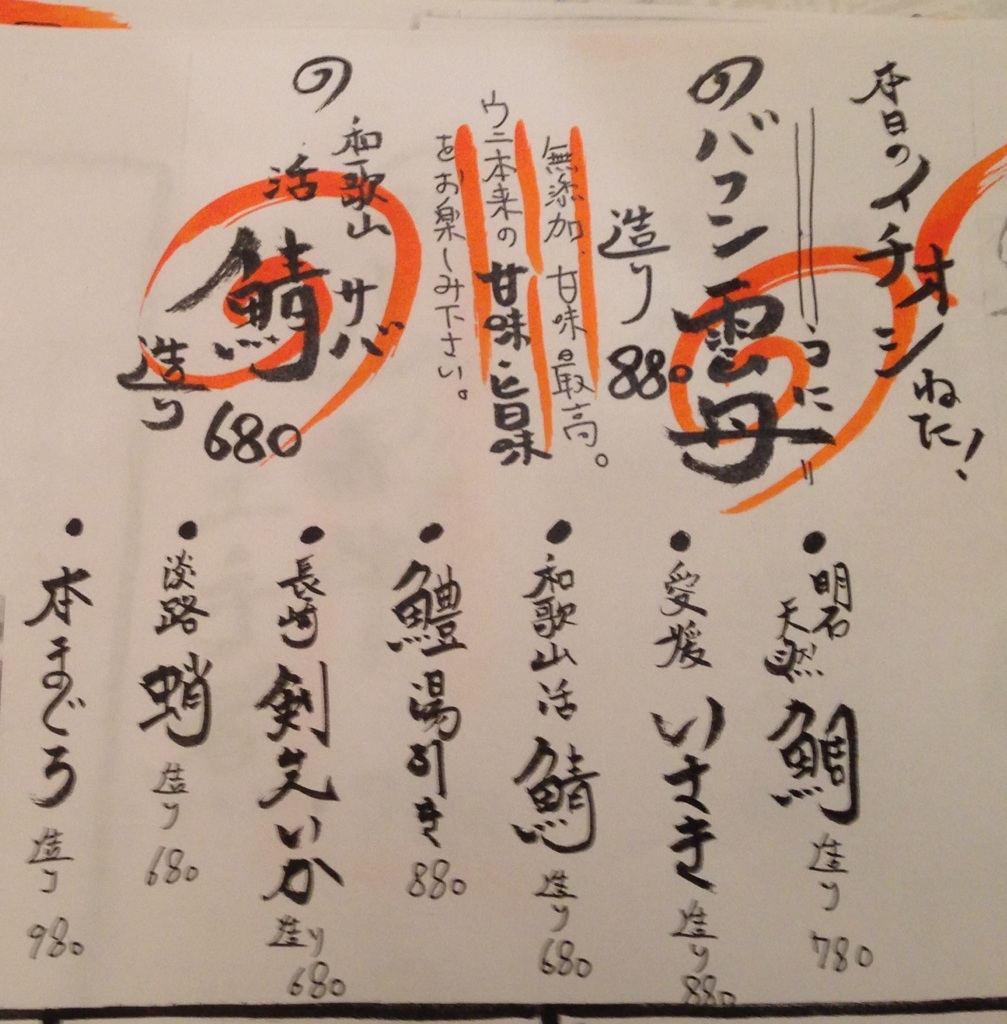 本日のイチオシねた!
うに
のバフン雲丹
造り 880
無添加、甘味最高。
ウニ本来の甘味・旨味
をお楽しみ下さい。
の
和歌山 サバ
活 鯖
造り 680
・明石
天然 鯛 造り 780
・愛媛 いさき 造り 880
・和歌山活 鯖 造り 680
・鱧湯引き 880
・長崎 剣先いか 造り 680
・淡路 蛸 造り 680
・本まぐろ 造り 980